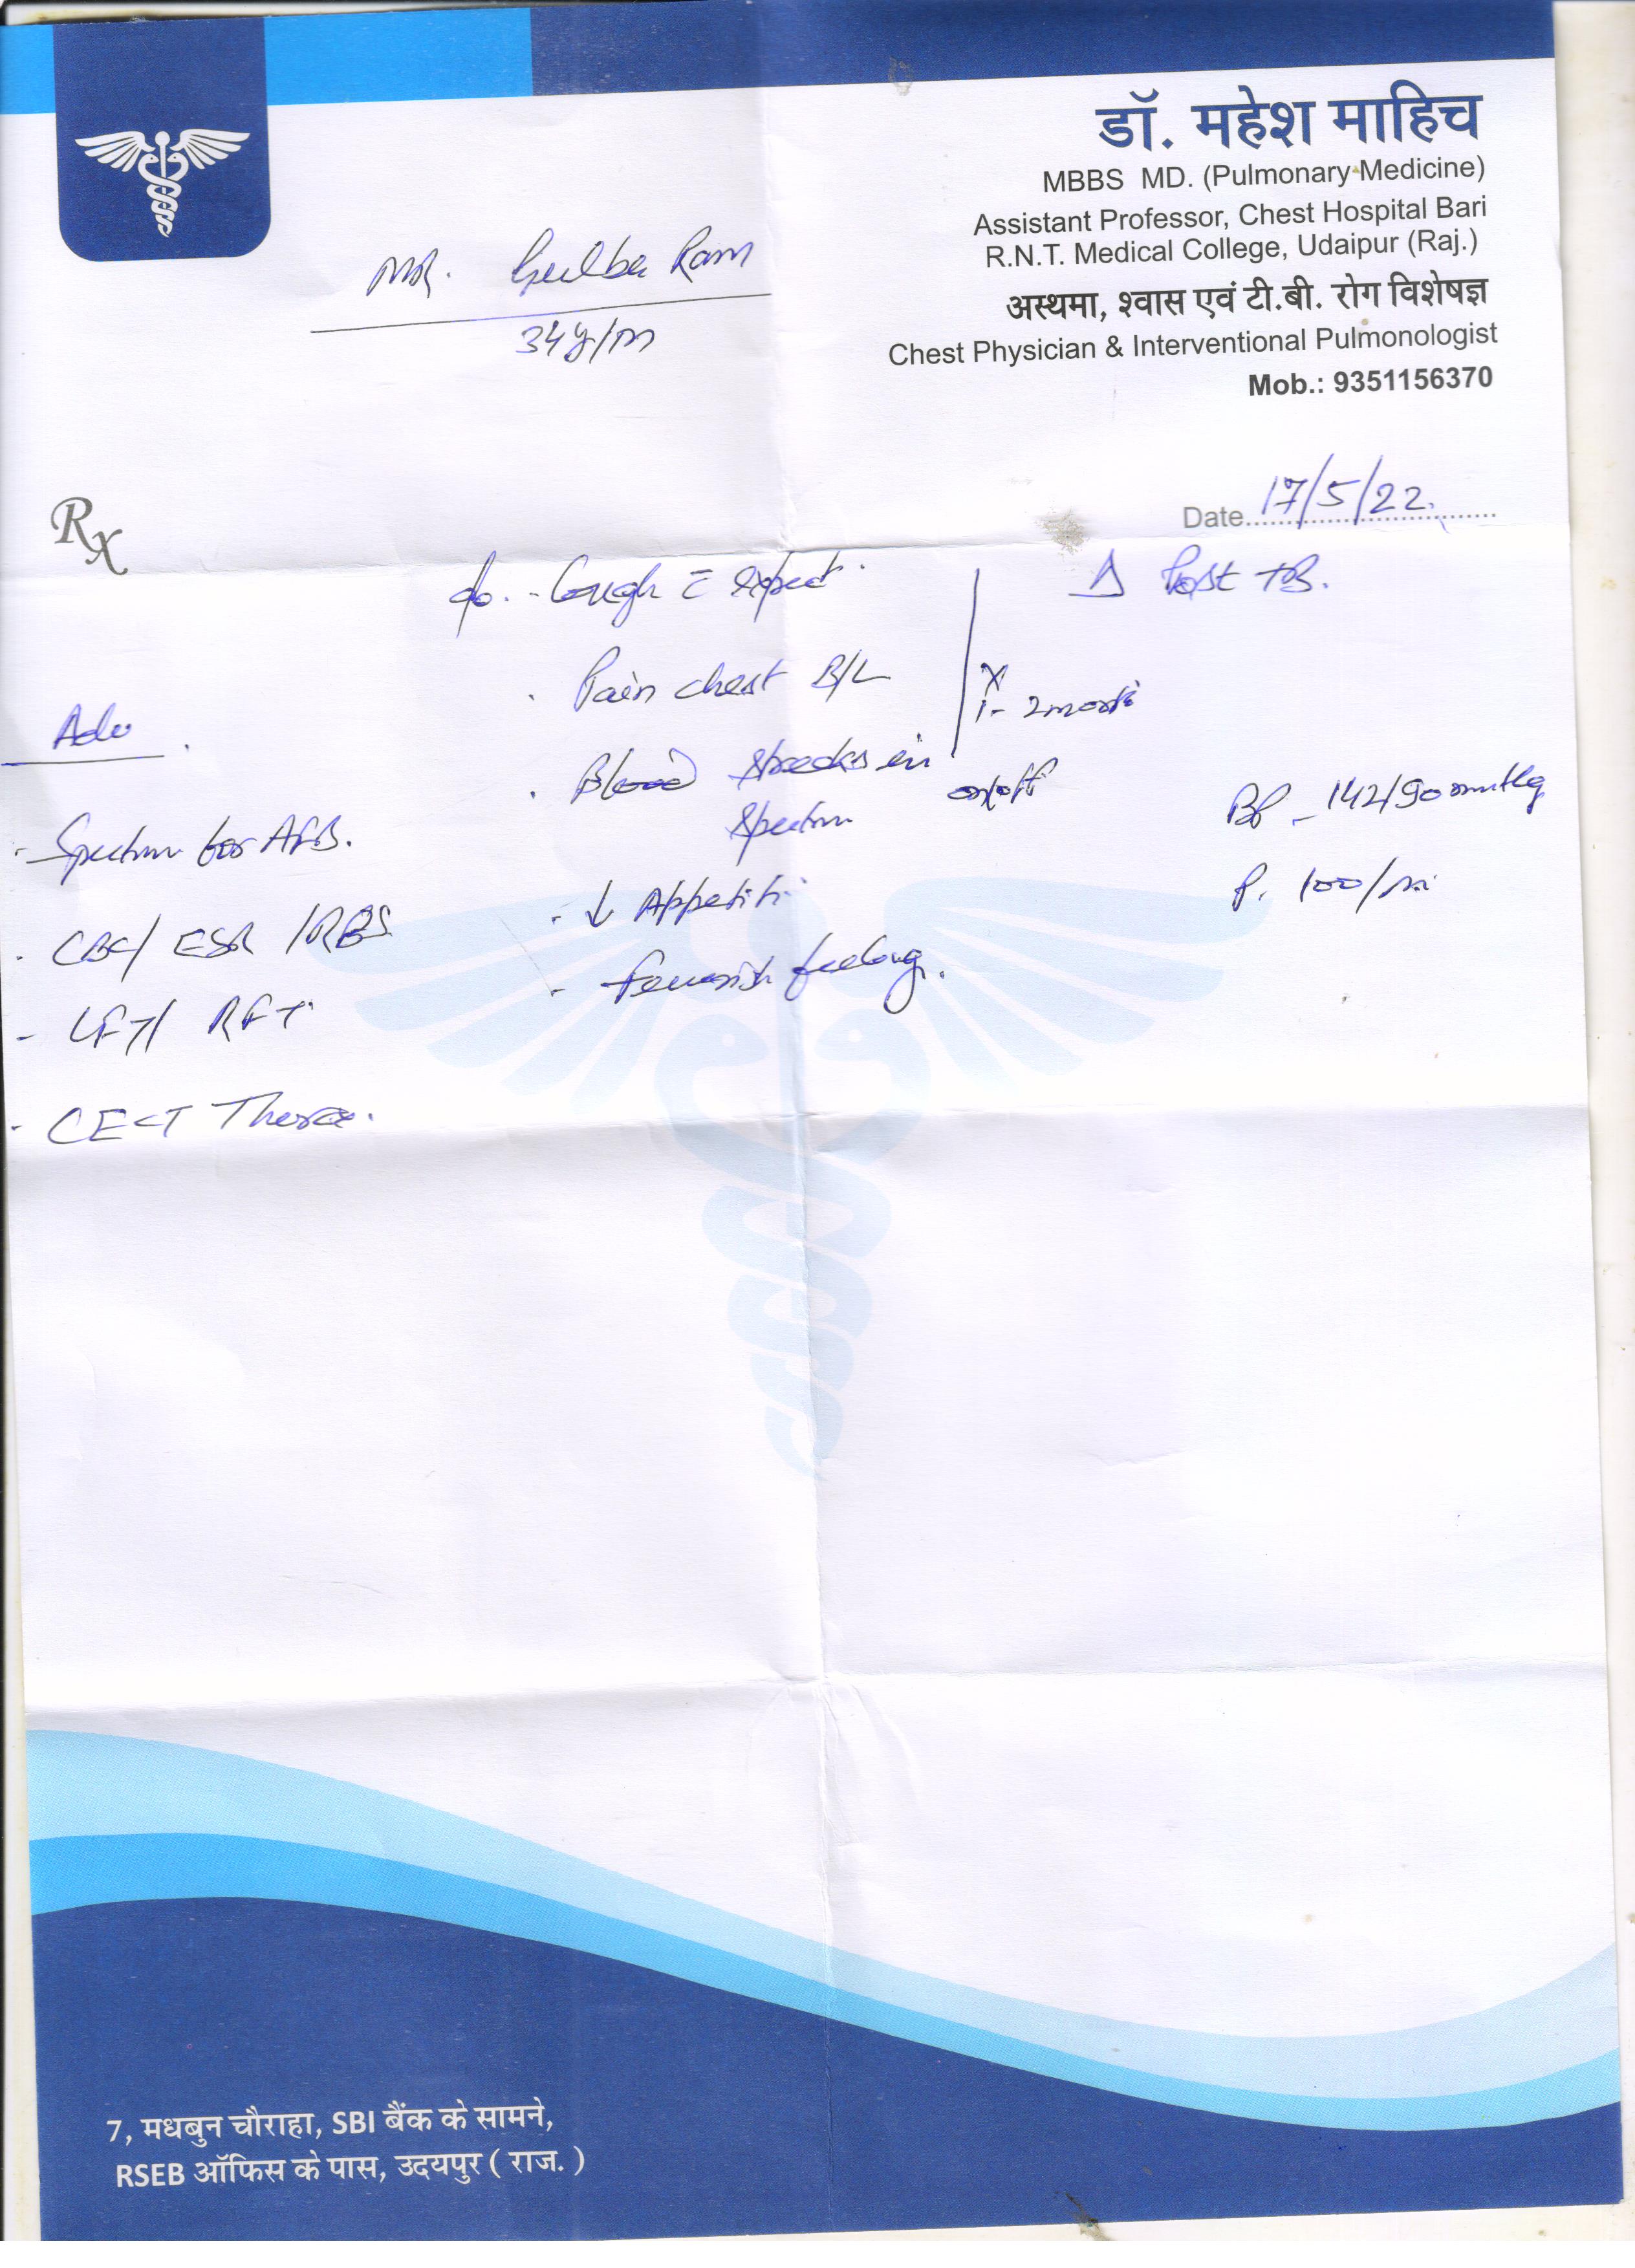 डॉ. महेश माहिच
MBBS MD. (Pulmonary Medicine)
Assistant Professor, Chest Hospital Bari
R.N.T. Medical College, Udaipur (Raj.)
अस्थमा, श्वास एवं टी.बी. रोग विशेषज्ञ
Chest Physician & Interventional Pulmonologist
Mob.: 9351156370
MR. Gulba Ram
34y/m
Date 17/5/22.
Rx
c/o. - Cough c̄ expect.
Δ Post TB.
. Pain chest B/L
X
1-2 month
. Blood streaks in
Sputum
on/off
- ↓ Appetite
- Feverish feeling.
BP - 142/90 mmHg
P. 100/mi
Adv
- Sputum for AFB.
. CBC/ ESR /RBS
- LFT/ RFT.
- CECT Thorax.
7, मधुबन चौराहा, SBI बैंक के सामने,
RSEB ऑफिस के पास, उदयपुर ( राज. )